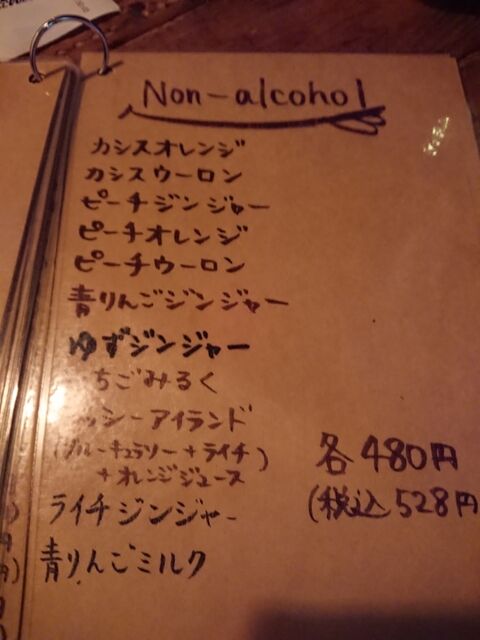 Non-alcohol
カシスオレンジ
カシスウーロン
ピーチジンジャー
ピーチオレンジ
ピーチウーロン
青りんごジンジャー
ゆずジンジャー
ちごみるく
ッシーアイランド
(ブルーキュラソー+ライチ)
+オレンジジュース
ライチジンジャー
青りんごミルク
各480円
(税込528円